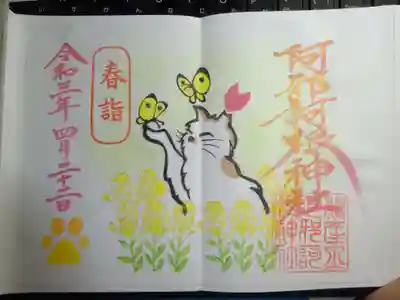 阿邪訶根神社
春詣
令和三年四月二十二日